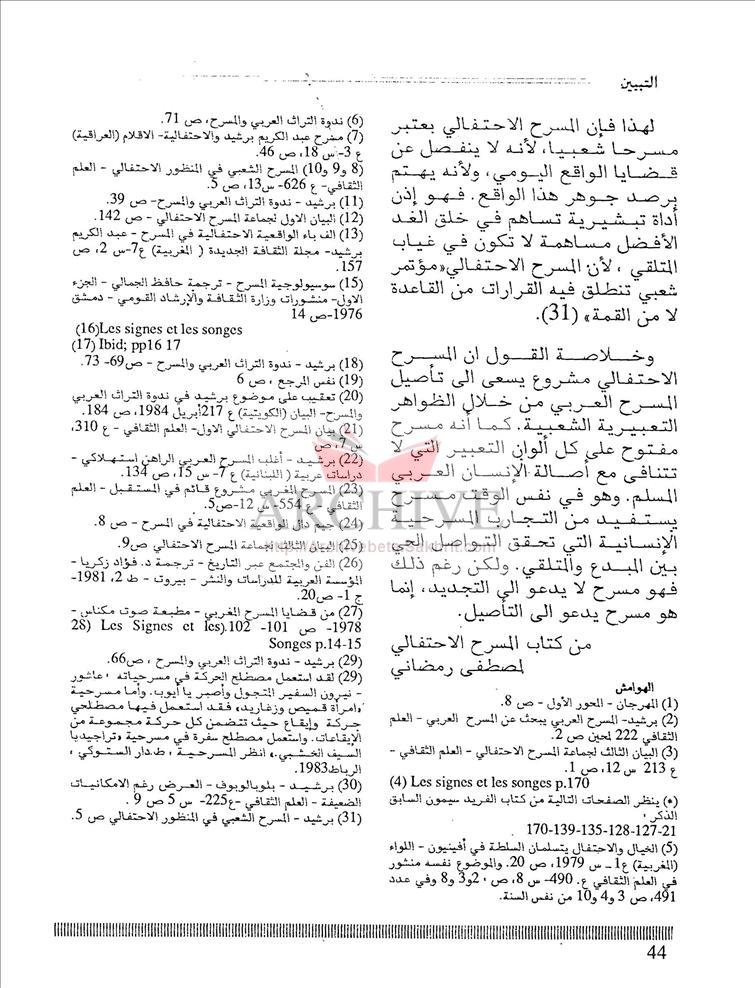 التبيين
لهذا فإن المسرح الاحتفالي يعتبر
مسرحا شعبيا، لأنه لا ينفصل عن
قضايا الواقع اليومي، ولأنه يهتم
برصد جوهر هذا الواقع. فهو إذن
أداة تبشيرية تساهم في خلق الغد
الأفضل مساهمة لا تكون في غياب
المتلقي ، لأن المسرح الاحتفالي«مؤتمر
شعبي تنطلق فيه القرارات من القاعدة
لا من القمة» (31).
وخلاصة القول ان المسرح
الاحتفالي مشروع يسعى الى تأصيل
المسرح العربي من خلال الظواهر
التعبيرية الشعبية. كما أنه مسرح
مفتوح على كل ألوان التعبير التي لا
تتنافى مع أصالة الإنسان العربي
المسلم. وهو في نفس الوقت مسرح
يستفيد من التجارب المسرحية
الإنسانية التي تحقق التواصل الحي
بين المبدع والمتلقي. ولكن رغم ذلك
فهو مسرح لا يدعو الى التجديد، إنما
هو مسرح يدعو الى التأصيل.
من كتاب المسرح الاحتفالي
لمصطفى رمضاني
الهوامش
(1) المهرجان - المحور الأول - ص 8.
(2) برشيد- المسرح العربي يبحث عن المسرح العربي - العلم
الثقافي 222 لحين ص 2.
(3) البيان الثالث لجماعة المسرح الاحتفالي - العلم الثقافي -
ع 213 س 12، ص 1.
(4) Les signes et les songes p.170
(*) ينظر الصفحات التالية من كتاب الفريد سيمون السابق
الذكر ؛
170-139-135-128-127-21
(5) الخيال والاحتفال يتسلمان السلطة في أفينيون - اللواء
(المغربية) ع1 ـ س 1979، ص 20. والموضوع نفسه منشور
في العلم الثقافي ع. 490- س 8، ص 2و3 و8 وفي عدد
491، ص 3 و4 و10 من نفس السنة.
(6) ندوة التراث العربي والمسرح، ص 71.
(7) مسرح عبد الكريم برشيد والاحتفالية- الاقلام (العراقية)
ع 3- س 18، ص 46.
(8 و9 و10) المسرح الشعبي في المنظور الاحتفالي - العلم
الثقافي- ع 626- س13، ص 5.
(11) برشيد - ندوة التراث العربي والمسرح- ص 39.
(12) البيان الاول لجماعة المسرح الاحتفالي - ص 142.
(13) الف باء الواقعية الاحتفالية في المسرح - عبد الكريم
برشيد- مجلة الثقافة الجديدة ( المغربية) ع7-س 2، ص
157.
(15) سوسيولوجية المسرح - ترجمة حافظ الجمالي - الجزء
الاول- منشورات وزارة الثقافة والإرشاد القومي - دمشق
1976-ص 14
(16)Les signes et les songes
(17) Ibid; pp16 17
(18) برشيد - ندوة التراث العربي والمسرح - ص69- 73.
(19) نفس المرجع ، ص 6
(20) تعقيب على موضوع برشيد في ندوة التراث العربي
والمسرح- البيان (الكويتية) ع 217أبريل 1984، ص 184.
(21) بيان المسرح الاحتفالي الاول- العلم الثقافي - ع 310،
س 7، ص
(22) برشيد - أغلب المسرح العربي الراهن استهلاكي -
دراسات عربية ( اللبنانية) ع 7- س 15، ص 134.
(23) المسرح المغربي مشروع قائم في المستقبل - العلم
الثقافي ع 554- س 12-ص5.
(24) جيم دال الواقعية الاحتفالية في المسرح - ص 8.
(25) البيان الثالث لجماعة المسرح الاحتفالي ص9.
(26) الفن والمجتمع عبر التاريخ - ترجمة د. فؤاد زكريا -
المؤسسة العربية للدراسات والنشر - بيروت - ط 2، 1981-
ج 1- ص20.
(27) من قضايا المسرح المغربي - مطبعة صوت مكناس -
1978- ص 101- 102.(28 Les Signes et les
Songes p.14-15
(29) برشيد - ندوة التراث العربي والمسرح ، ص66.
(29) لقد استعمل مصطلح الحركة في مسرحياته ، عاشور
- نيرون السفير المتجول وأصبر يا أيوب. وأما مسرحية
«امرأة قميص وزغاريد، فقد استعمل فيها مصطلحي
حركة وإيقاع حيث تتضمن كل حركة مجموعة من
الإيقاعات. واستعمل مصطلح سفرة في مسرحية «تراجيديا
السيف الخشبي». انظر المسرحية ، ط.دار الستوكي ،
الرباط1983.
(30) برشيد - بلوبالوبوف - العرض رغم الامكانيات
الضعيفة - العلم الثقافي -ع225- س 5 ص 9 .
(31) برشيد - المسرح الشعبي في المنظور الاحتفالي ص 5.
ARCHIVE
44